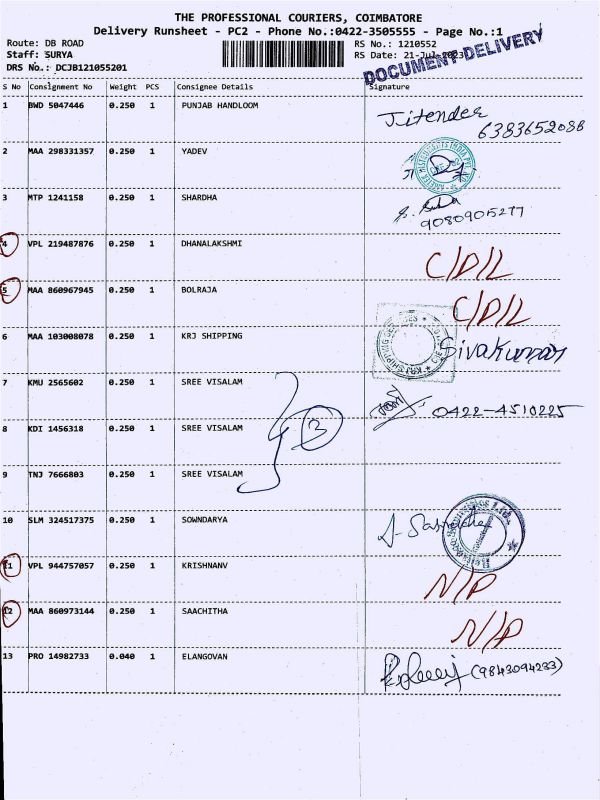 THE PROFESSIONAL COURIERS, COIMBATORE
Delivery Runsheet - PC2 - Phone No.:0422-3505555 - Page No.:1
Route: DB ROAD RS No.: 1210552
Staff: SURYA RS Date: 21-Jul-2023
DRS No.: DCJB121055201
DOCUMENT DELIVERY
S No Consignment No Weight PCS Consignee Details Signature
1 BWD 5047446 0.250 1 PUNJAB HANDLOOM Jitender
6383652088
2 MAA 298331357 0.250 1 YADEV
3 MTP 1241158 0.250 1 SHARDHA
9080905277
4 VPL 219487876 0.250 1 DHANALAKSHMI C/D/L
5 MAA 860967945 0.250 1 BOLRAJA C/D/L
6 MAA 103008078 0.250 1 KRJ SHIPPING KRJ SHIPPING Sivakumar
7 KMU 2565602 0.250 1 SREE VISALAM 0422-4510225
8 KDI 1456318 0.250 1 SREE VISALAM 3
9 TNJ 7666803 0.250 1 SREE VISALAM
10 SLM 324517375 0.250 1 SOWNDARYA
11 VPL 944757057 0.250 1 KRISHNANV N/P
12 MAA 860973144 0.250 1 SAACHITHA N/P
13 PRO 14982733 0.040 1 ELANGOVAN (9843094233)